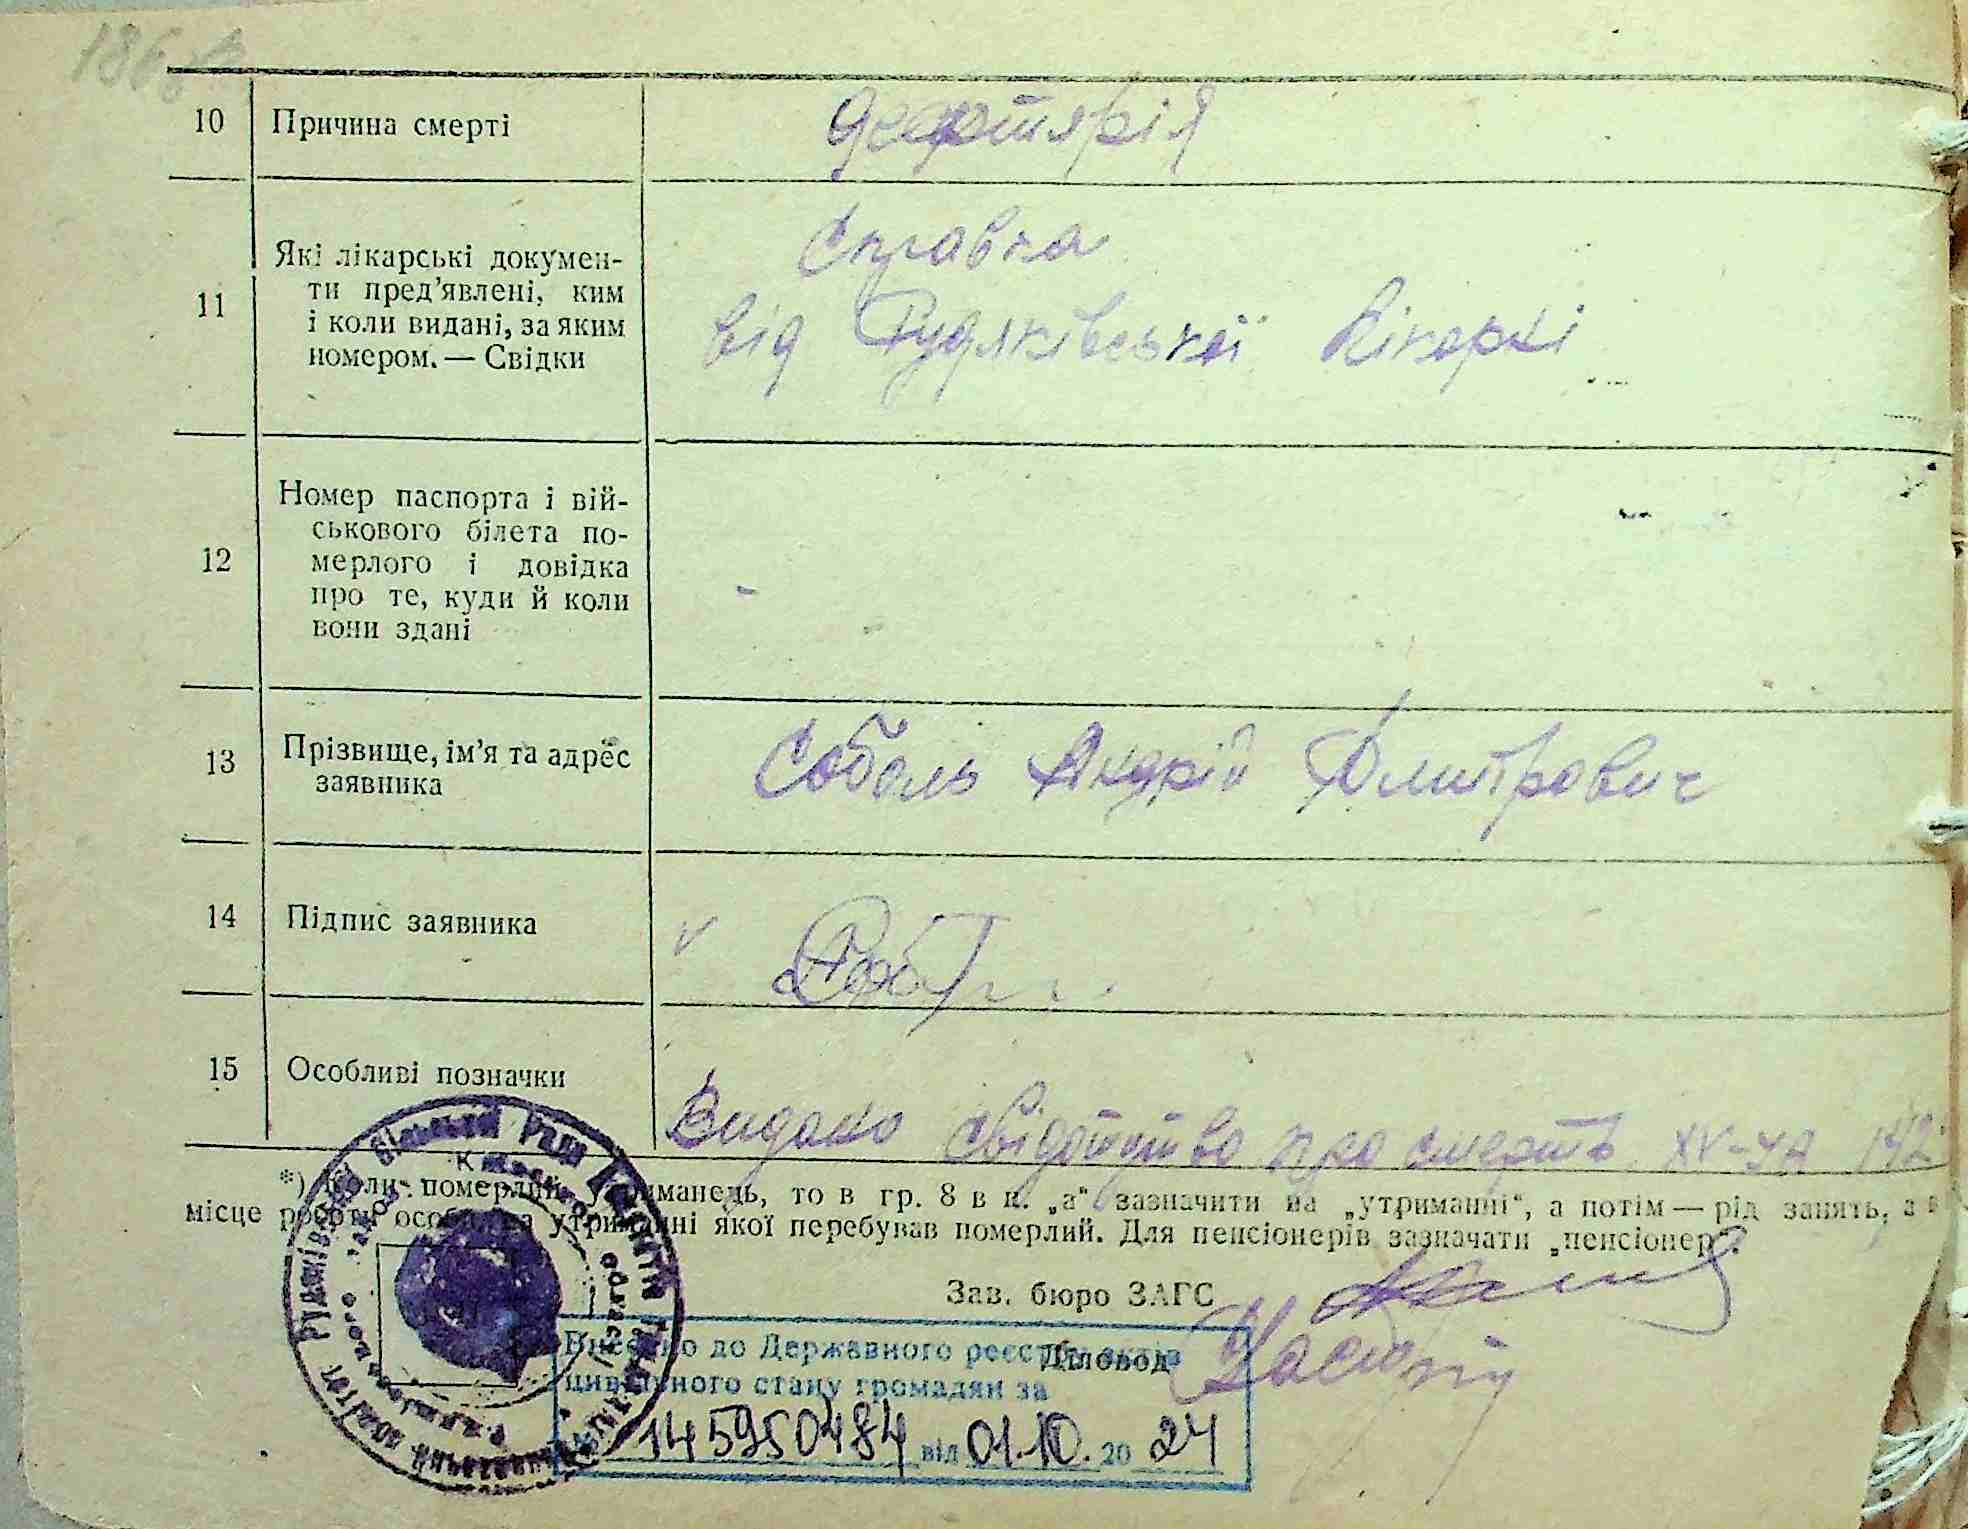 10 Причина смерті дефтярія
11 Які лікарські докумен-
ти пред’явлені, ким
і коли видані, за яким
номером. — Свідки
Справка
від Рудяківської лікарні
12 Номер паспорта і вій-
ськового білета по-
мерлого і довідка
про те, куди й коли
вони здані
-
13 Прізвище, ім’я та адрес
заявника
Соболь Андрій Дмитрович
14 Підпис заявника
15 Особливі позначки
Видано свідотство про смерть XV-УА 142
*) Коли померлий утриманець, то в гр. 8 в п. „а“ зазначити на „утриманні“, а потім — рід занять, а в
місце роботи особи, на утриманні якої перебував померлий. Для пенсіонерів зазначати „пенсіонер“.
Зав. бюро ЗАГС
Діловод
Внесено до Державного реєстру актів
цивільного стану громадян за
145950484 від 01.10. 2024